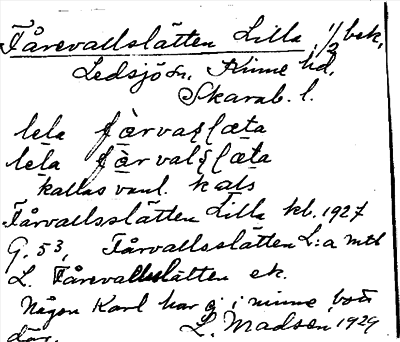 Fårevallslätten Lilla 1/2 bek,
Ledsjö sn, Kinne hd,
Skarab. l.
lela fàrvaslæta
lela fàrvalslæta
kallas vanl. kals
Fårvallsslätten Lilla kb. 1927
G. 53, Fårvallsslätten L:a mtb
L. Fårevallslätten ek.
Någon Karl har ej i minne bott
där. L. Madsén 1929